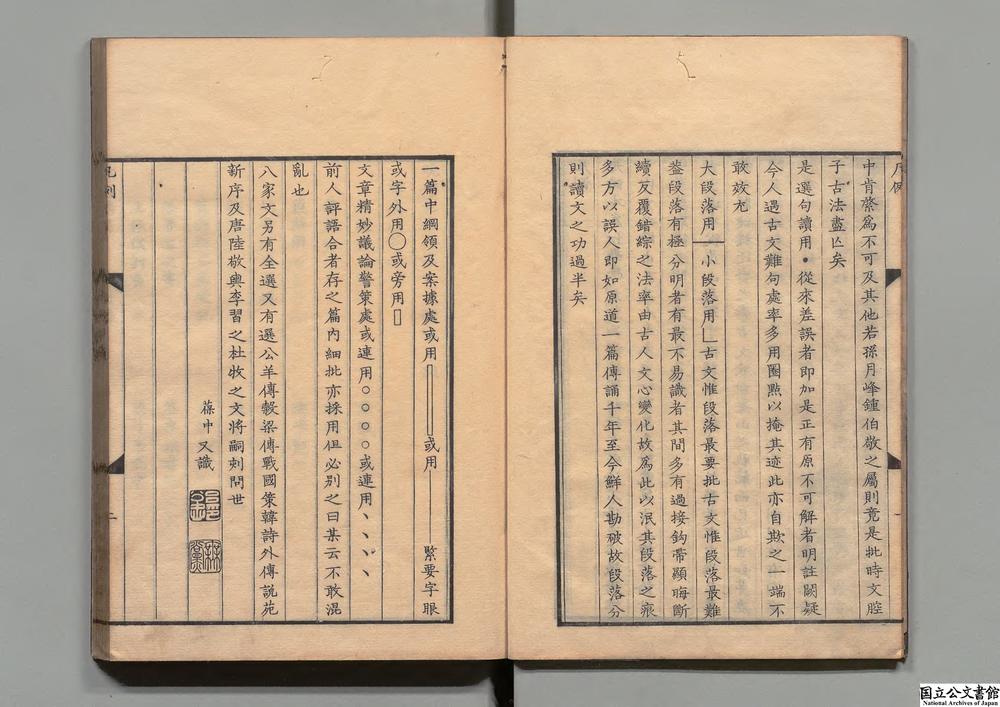 中肯綮爲不可及其他若孫月峰鍾伯敬之屬則竟是批時文腔
子古法盡亾矣
是選句讀用•從來差誤者即加是正有原不可解者明註闕疑
今人遇古文難句處率多用圈㸃以掩其迹此亦自欺之一端不
敢效尤
大段落用──小段落用﹂古文惟段落最要批古文惟段落最難
葢段落有極分明者有最不易識者其間多有過接鈎帶顯晦斷
續反覆錯綜之法率由古人文心變化故爲此以泯其段落之痕
多方以誤人即如原道一篇傳誦千年至今鮮人勘破故段落分
則讀文之功過半矣
一篇中綱領及案據處或用▯或用──緊要字眼
或字外用◯或旁用▯
文章精妙議論警策處或連用○○○○或連用丶丶丶丶
前人評語合者存之篇內細批亦採用但必別之曰某云不敢混
亂也
八家文另有全選又有選公羊傳縠梁傳戰國策韓詩外傳說苑
新序及唐陸敬輿李習之杜牧之文將嗣刻問世
葆中又識
凡例
一
二
国立公文書館
National Archives of Japan